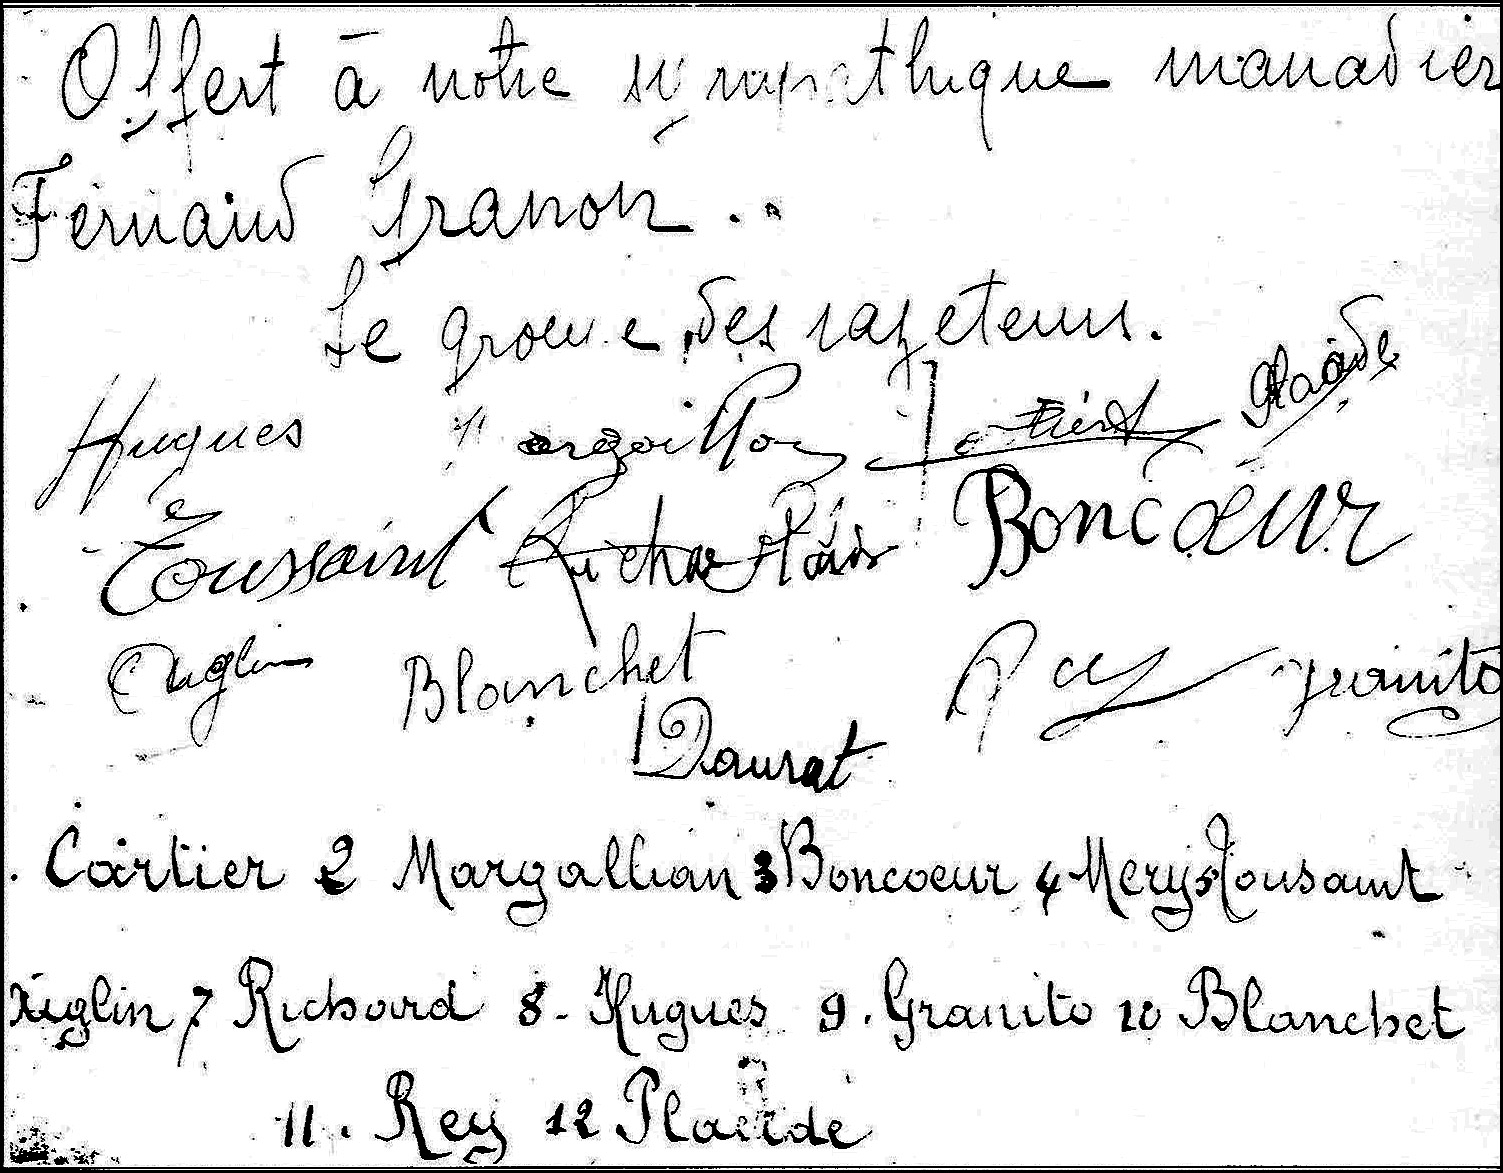 Offert à notre sympathique manadier
Fernand Granon..
Le groupe des razeteurs.
Hugues Margaillan Cartier Plainde
Toussaint Richard Boncoeur
Auglin Blanchet Rey Granito
Daurat
Cartier 2 Margallian 3 Boncoeur 4 Mery 5 Tousaint
Auglin 7 Richard 8 - Hugues 9. Granito 10 Blanchet
11. Rey 12 Plaende